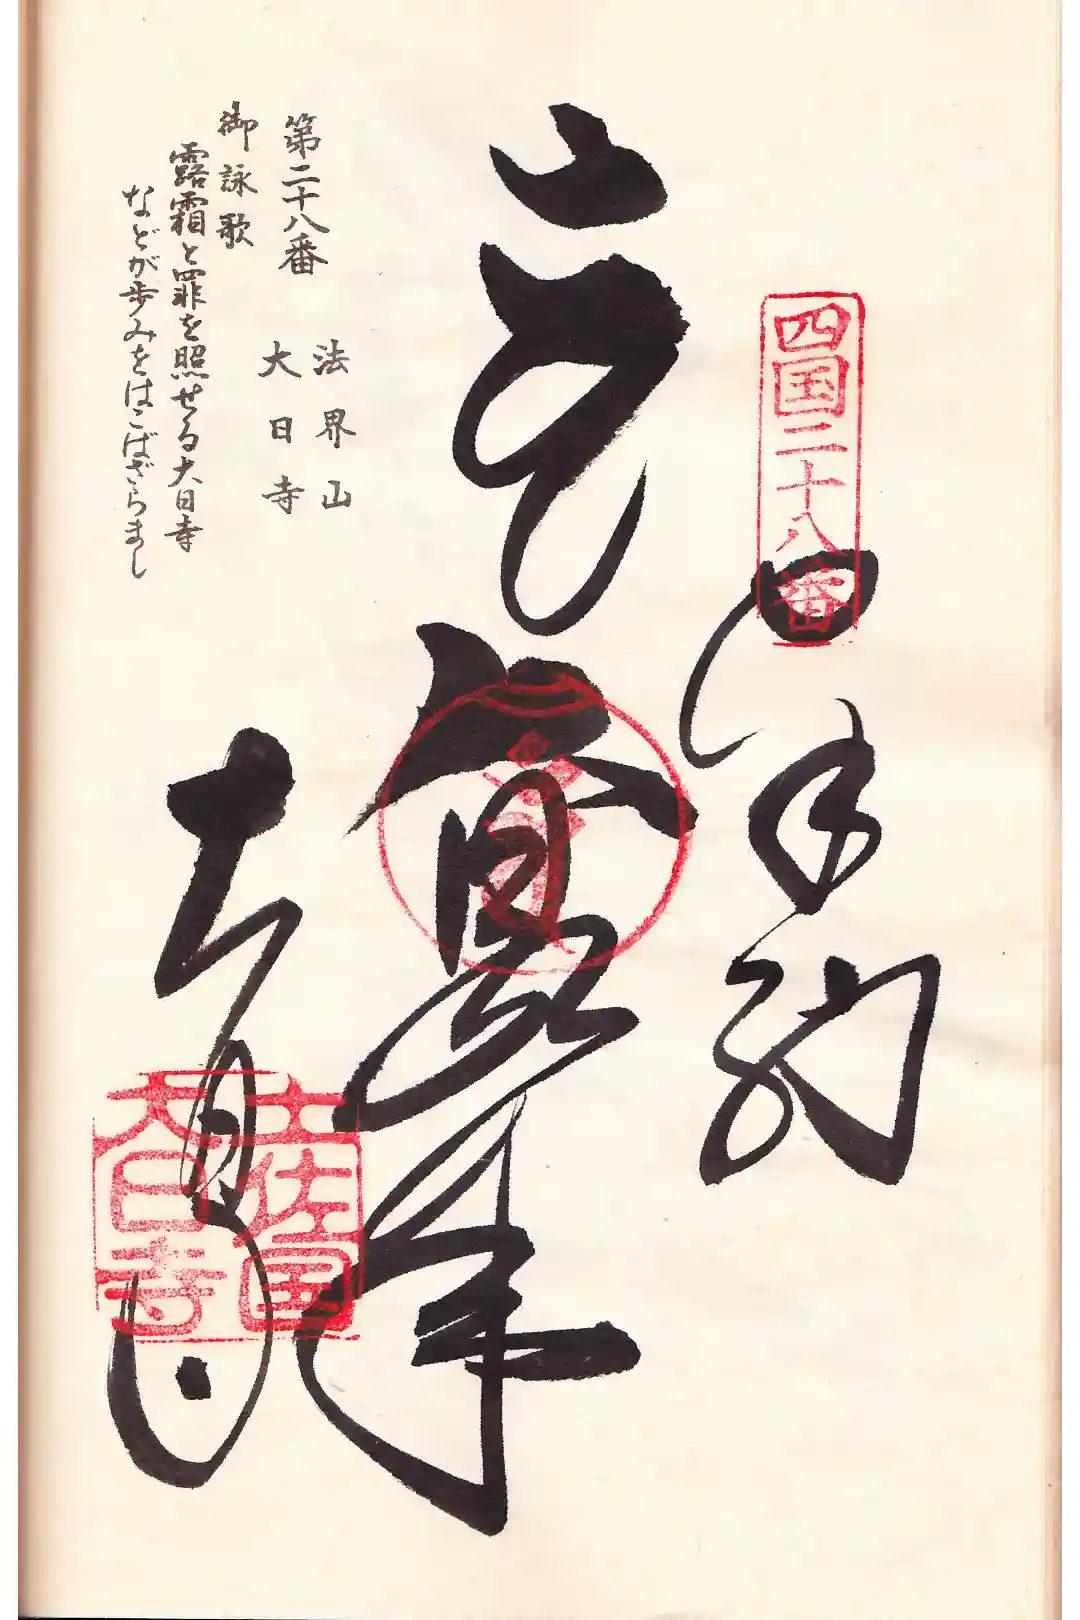 四国二十八番
奉納
法界山
第二十八番
大日寺
御詠歌
露霜と罪を照せる大日寺
などが歩みをはこばざらまし
大日寺
土佐国
大日寺